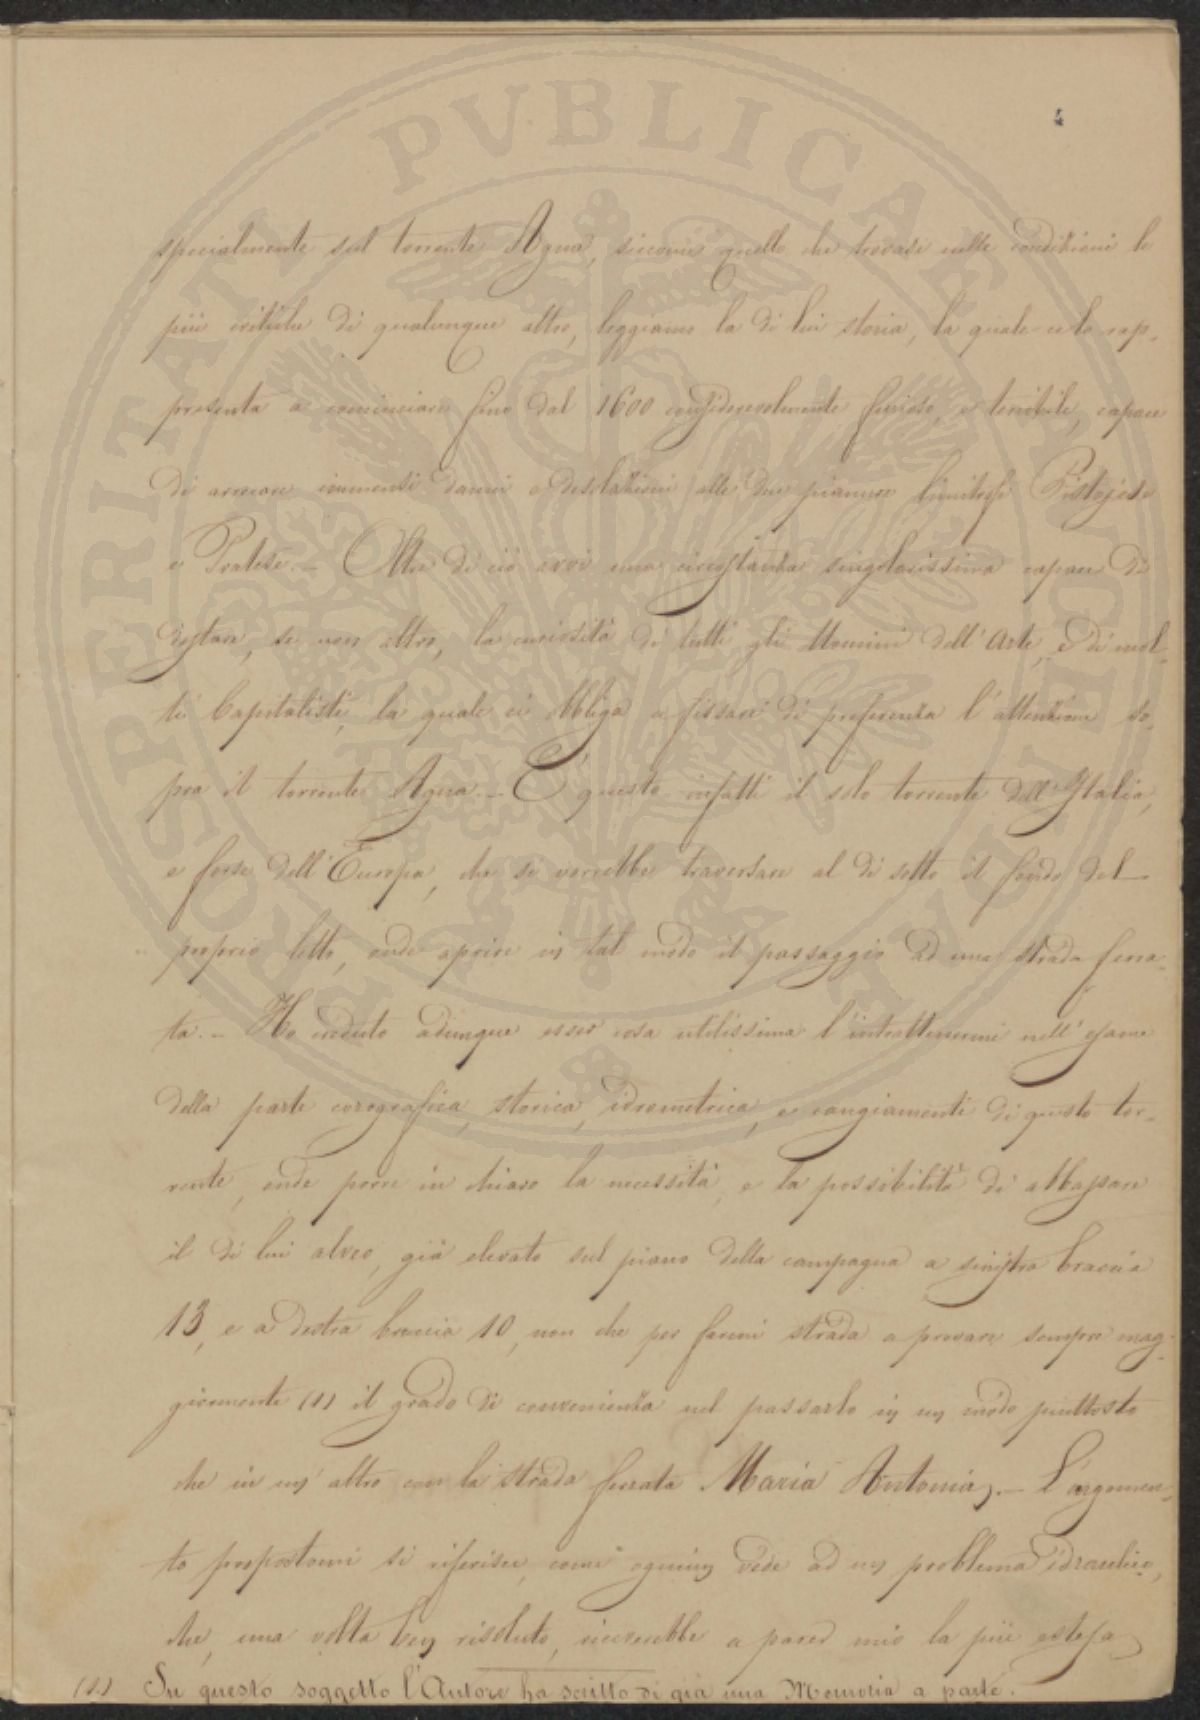 specialmente sul torrente Agna, siccome quello che trovasi nelle condizioni le
più critiche di qualunque altro, leggiamo la di lui storia, la quale ce lo rap-
presenta a cominciare fino dal 1600 considerevolmente furioso, e terribile, capace
di arrecare immensi danni e desolazioni alle due pianure limitrofe Pistojese
e Pratese. - Oltre di ciò avvi una circostanza singolarissima capace di
destare, se non altro, la curiosità di tutti gli Uomini dell'Arte, e di mol-
ti Capitalisti, la quale ci obbliga a fissare di preferenza l'attenzione so-
pra il torrente Agna. - È questo infatti il solo torrente dell'Italia,
e forse dell'Europa, che si vorrebbe traversare al di sotto il fondo del
proprio letto, onde aprire in tal modo il passaggio ad una strada ferra-
ta. - Ho creduto adunque esser cosa utilissima l'intrattenermi nell'esame
della parte corografica, storica, idrometrica, e cangiamenti di questo tor-
rente, onde porre in chiaro la necessità, e la possibilità di abbassare
il di lui alveo, già elevato sul piano della campagna a sinistra braccia
13, e a destra braccia 10, non che per farmi strada a provare sempre mag-
giormente (1) il grado di convenienza nel passarlo in un modo piuttosto
che in un'altro con la strada ferrata Maria Antonia. - L'argomen-
to propostomi si riferisce, come ognun vede ad un problema idraulico,
che, una volta ben risoluto, riceverebbe a parer mio la più estesa
(1) Su questo soggetto l'Autore ha scritto di già una Memoria a parte.
PROSPERITATI PVBLICAE AVGENDAE